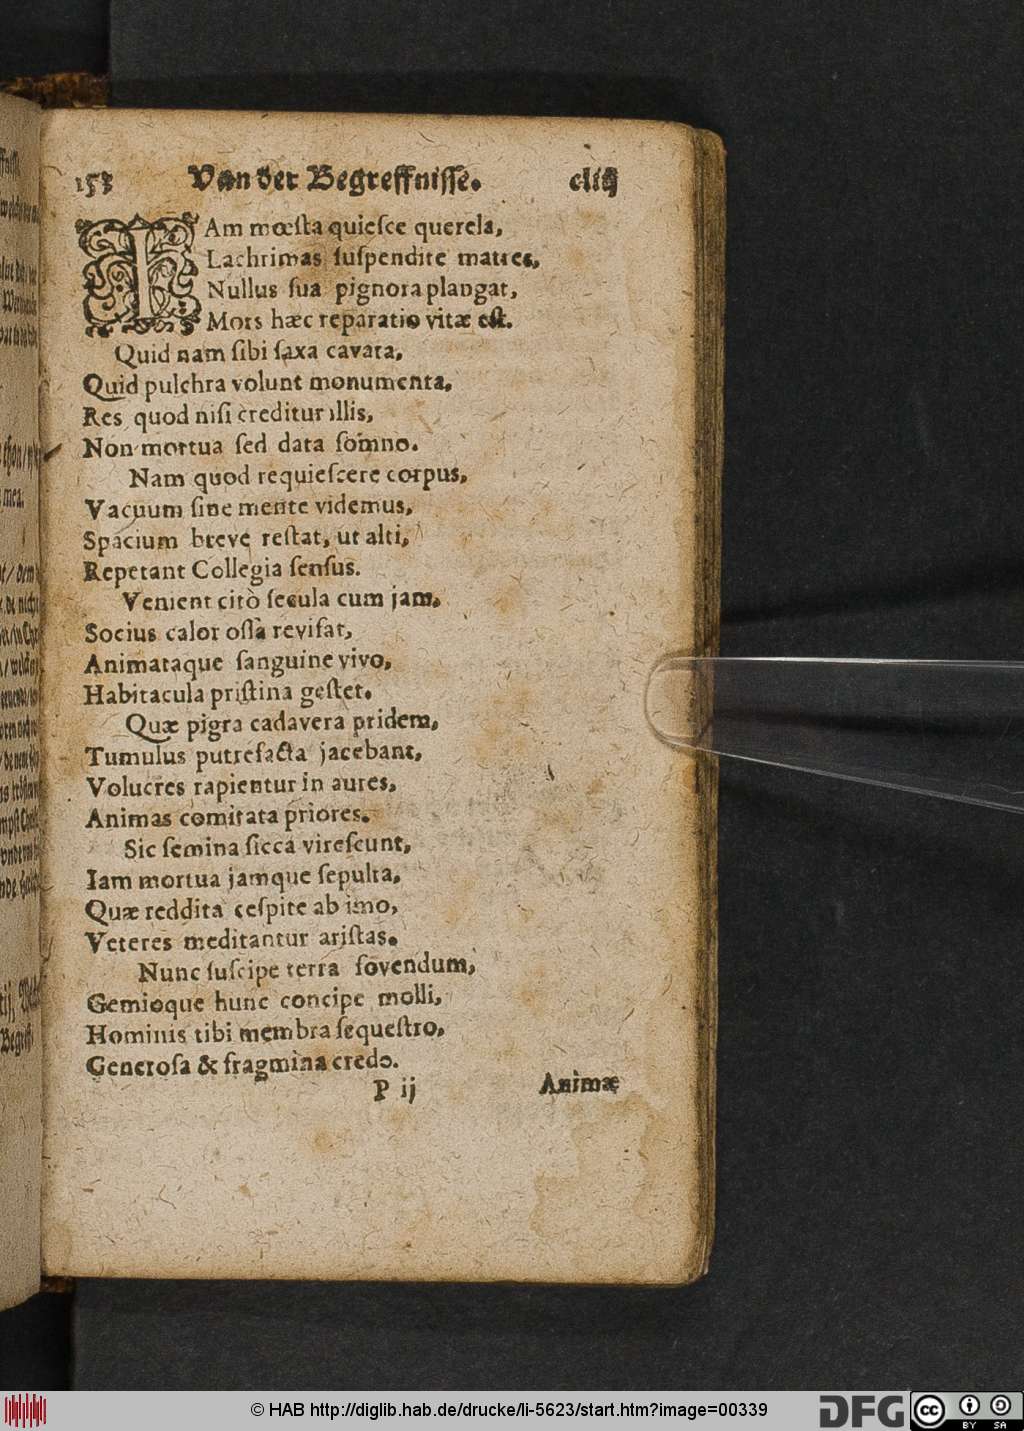 153 Van der Begreffnisse. cliij
IAm mœsta quiesce querela,
Lachrimas suspendite matres,
Nullus sua pignora plangat,
Mors hæc reparatio vitæ est.
Quid nam sibi saxa cavata,
Quid pulchra volunt monumenta,
Res quod nisi creditur illis,
Non mortua sed data somno.
Nam quod requiescere corpus,
Vacuum sine mente videmus,
Spacium breve restat, ut alti,
Repetant Collegia sensus.
Venient citò secula cum jam,
Socius calor ossa revisat,
Animataque sanguine vivo,
Habitacula pristina gestet.
Quæ pigra cadavera pridem,
Tumulus putrefacta jacebant,
Volucres rapientur in aures,
Animas comitata priores.
Sic semina sicca virescunt,
Iam mortua jamque sepulta,
Quæ reddita cespite ab imo,
Veteres meditantur aristas.
Nunc suscipe terra fovendum,
Gemioque hunc concipe molli,
Hominis tibi membra sequestro,
Generosa & fragmina credo.
P ij Animæ
© HAB http://diglib.hab.de/drucke/li-5623/start.htm?image=00339
DFG cc BY SA